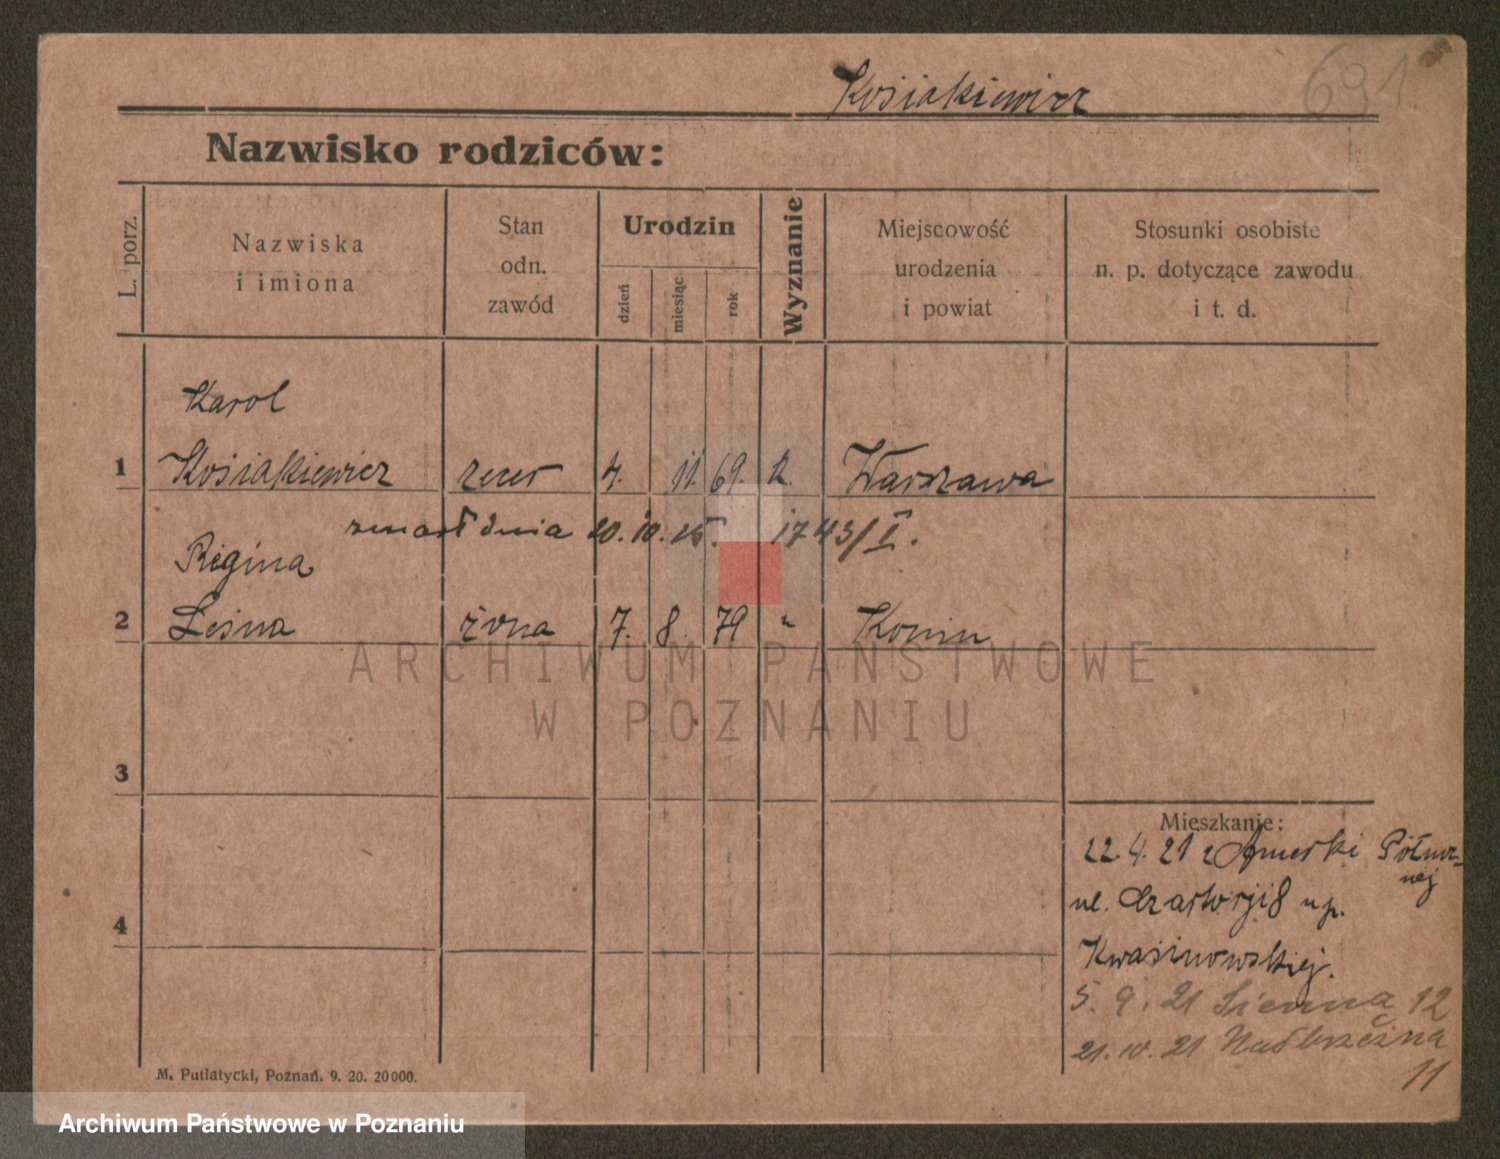 Kosiakiewicz
691
Nazwisko rodziców:
L. porz.
Nazwiska
i imiona
Stan
odn.
zawód
Urodzin
dzień
miesiąc
rok
Wyznanie
Miejscowość
urodzenia
i powiat
Stosunki osobiste
n. p. dotyczące zawodu
i t. d.
Karol
1 Kosiakiewicz zecer 4. 11. 69. R. Warszawa
zmarł dnia 20. 10. 25. 1743/I.
Regina
2 Leśna żona 7. 8. 79 " Konin
ARCHIWUM PAŃSTWOWE
W POZNANIU
3
Mieszkanie:
22. 4. 21 z Ameryki Północ-
nej
ul. 8 u p.
4
Kwasinowskiej.
5. 9. 21 Sienna 12
21. 10. 21 Nadbrzeżna
11
M. Putiatycki, Poznań. 9. 20. 20000.
Archiwum Państwowe w Poznaniu